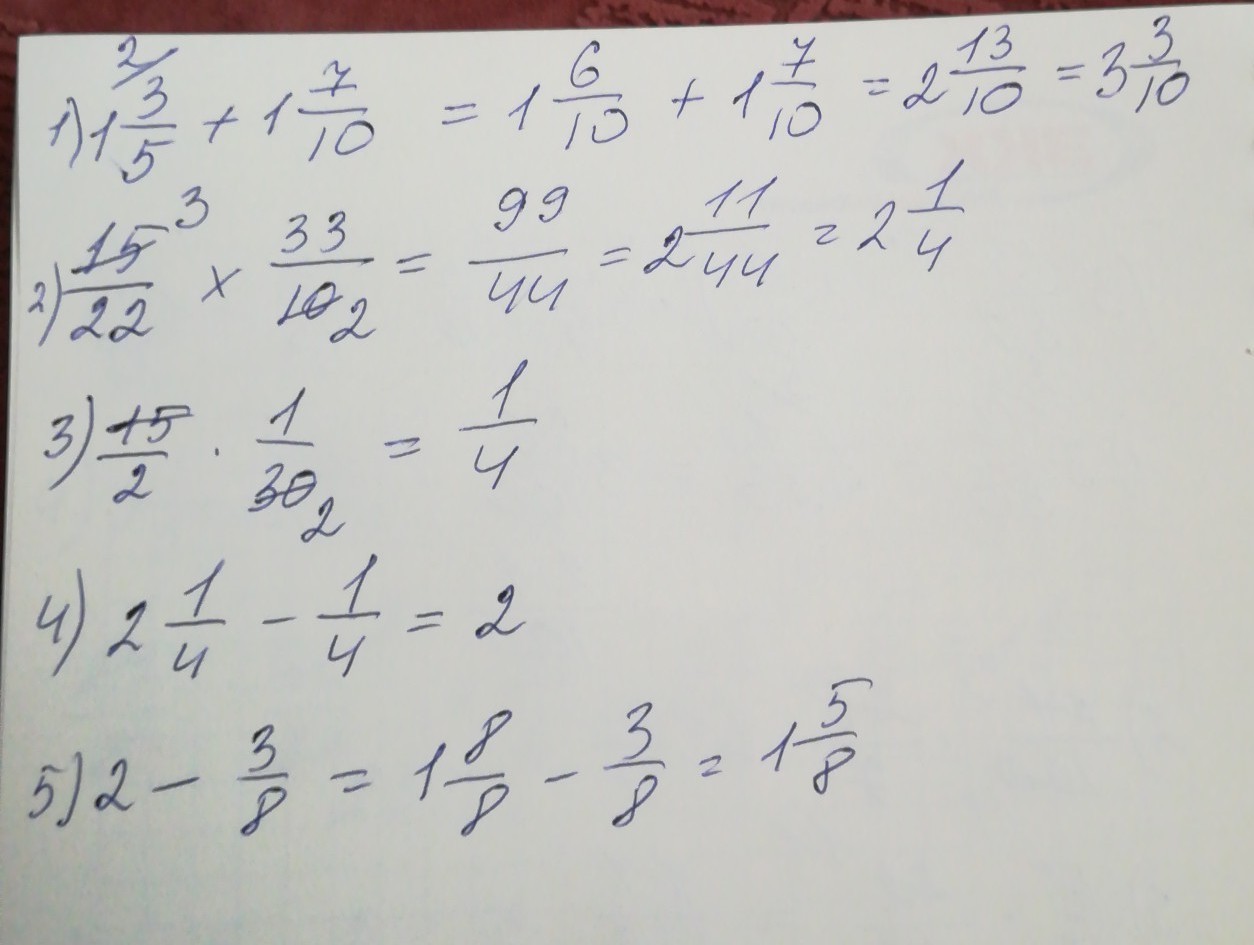 1) 1 3/5 2/ + 1 7/10 = 1 6/10 + 1 7/10 = 2 13/10 = 3 3/10
2) 15/22 3 × 33/10 2 = 99/44 = 2 11/44 = 2 1/4
3) 15/2 · 1/30 2 = 1/4
4) 2 1/4 - 1/4 = 2
5) 2 - 3/8 = 1 8/8 - 3/8 = 1 5/8